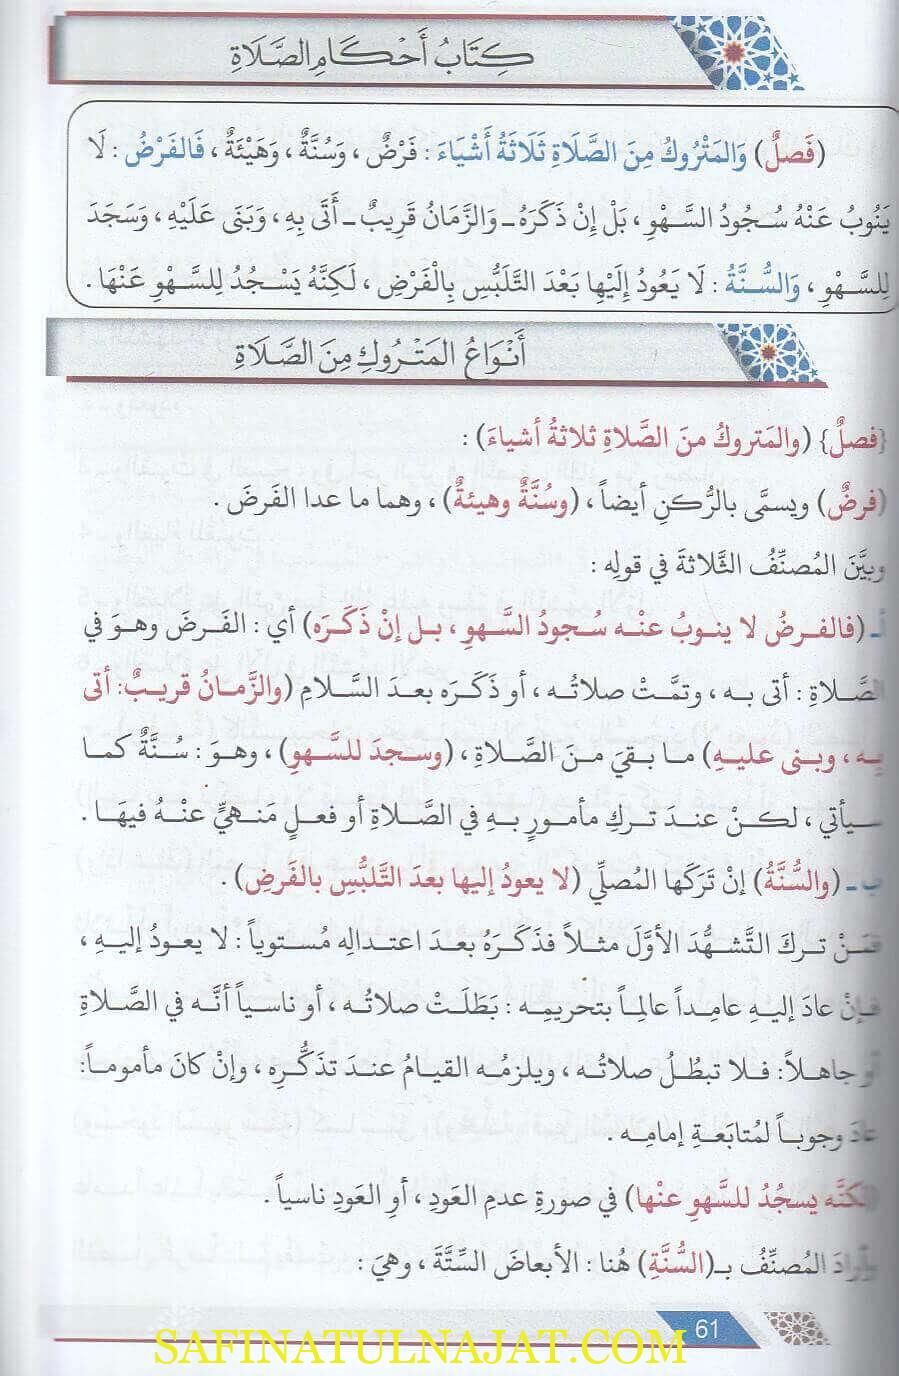 كِتَابُ أَحْكَامِ الصَّلَاةِ
(فَصلٌ) وَالمَتْرُوكُ مِنَ الصَّلَاةِ ثَلَاثَةُ أَشْيَاءَ : فَرْضٌ ، وَسُنَّةٌ ، وَهَيْئَةٌ ، فَالفَرْضُ : لَا
يَنُوبُ عَنْهُ سُجُودُ السَّهْوِ ، بَلْ إِنْ ذَكَرَهُ ـ وَالزَّمَانُ قَرِيبٌ ـ أَتَى بِهِ ، وَبَنَى عَلَيْهِ ، وَسَجَدَ
لِلسَّهْوِ ، وَالسُّنَّةُ : لَا يَعُودُ إِلَيْهَا بَعْدَ التَّلَبُّسِ بِالْفَرْضِ ، لَكِنَّهُ يَسْجُدُ لِلسَّهْوِ عَنْهَا .
أَنْوَاعُ المَتْرُوكِ مِنَ الصَّلَاةِ
{فصلٌ} (والمَتروكُ منَ الصَّلاةِ ثلاثةُ أشياءَ) :
(فرضٌ) ويسمَّى بالرُّكنِ أيضاً ، (وسُنَّةٌ وهيئةٌ) ، وهما ما عدا الفَرضَ .
وبيَّنَ المُصنِّفُ الثَّلاثةَ في قولِه :
أ ـ (فالفرضُ لا ينوبُ عنْه سُجودُ السَّهوِ ، بل إنْ ذَكَرَه) أي : الفَرضَ وهوَ في
الصَّلاةِ : أتى به ، وتمَّتْ صلاتُه ، أو ذَكَرَه بعدَ السَّلامِ (والزَّمانُ قريبٌ: أتى
بِه ، وبنى عليهِ) ما بقيَ منَ الصَّلاةِ ، (وسجدَ للسَّهوِ) ، وهوَ : سُنَّةٌ كما
سيأتي ، لكنْ عندَ تركِ مأمورٍ بهِ في الصَّلاةِ أو فعلٍ مَنهيٍّ عنْهُ فيهَا .
ب ـ (والسُّنَّةُ) إنْ تَرَكَها المُصلِّي (لا يعودُ إليها بعدَ التَّلبُّسِ بالفَرضِ) .
فمَنْ تركَ التَّشهُّدَ الأوَّلَ مثلاً فذَكَرَهُ بعدَ اعتدالِه مُستوياً : لا يعودُ إليهِ ،
فإنْ عادَ إليهِ عامِداً عالِماً بتحريمِه : بَطَلَتْ صلاتُه ، أو ناسياً أنَّه في الصَّلاةِ
أو جاهلاً: فلا تبطُلُ صلاتُه ، ويلزمُه القيامُ عندَ تذكُّرِه ، وإنْ كانَ مأموماً:
عادَ وجوباً لمُتابَعةِ إمامِه .
(لكنَّه يسجُدُ للسَّهوِ عنْها) في صورةِ عدمِ العَودِ ، أوِ العَودِ ناسياً .
وأرادَ المُصنِّفُ بـ(السُّنَّةِ) هُنا : الأبعاضَ السِّتَّةَ ، وهيَ :
61
SAFINATULNAJAT.COM